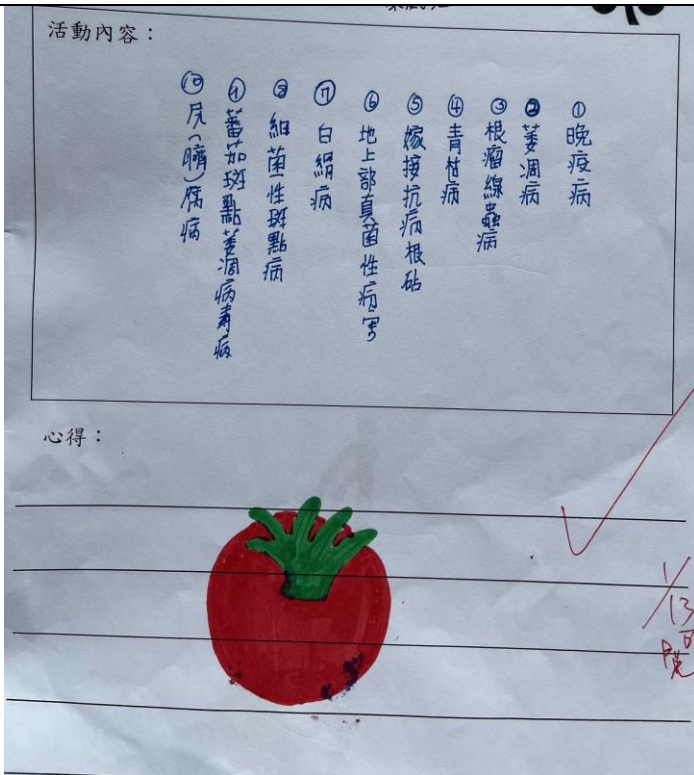 活動內容：
①晚疫病
②萎凋病
③根瘤線蟲病
④青枯病
⑤嫁接抗病根砧
⑥地上部真菌性病害
⑦白絹病
⑧細菌性斑點病
⑨蕃茄斑點萎凋病毒病
⑩尻(臍)腐病
心得：
1/13
閱